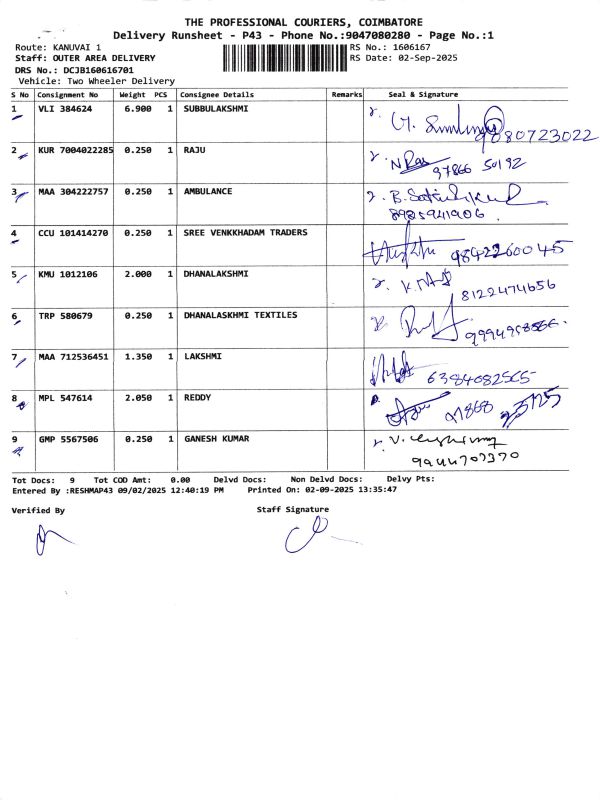 THE PROFESSIONAL COURIERS, COIMBATORE
Delivery Runsheet - P43 - Phone No.:9047080280 - Page No.:1
Route: KANUVAI 1 RS No.: 1606167
Staff: OUTER AREA DELIVERY RS Date: 02-Sep-2025
DRS No.: DCJB160616701
Vehicle: Two Wheeler Delivery
S No Consignment No Weight PCS Consignee Details Remarks Seal & Signature
1 VLI 384624 6.900 1 SUBBULAKSHMI
2 KUR 7004022285 0.250 1 RAJU 97866 50192
3 MAA 304222757 0.250 1 AMBULANCE
8925941906
4 CCU 101414270 0.250 1 SREE VENKKHADAM TRADERS 9842260045
5 KMU 1012106 2.000 1 DHANALAKSHMI
8122474656
6 TRP 580679 0.250 1 DHANALASKHMI TEXTILES
7 MAA 712536451 1.350 1 LAKSHMI 6384082565
8 MPL 547614 2.050 1 REDDY
9 GMP 5567506 0.250 1 GANESH KUMAR
9944707370
Tot Docs: 9 Tot COD Amt: 0.00 Delvd Docs: Non Delvd Docs: Delvy Pts:
Entered By :RESHMAP43 09/02/2025 12:40:19 PM Printed On: 02-09-2025 13:35:47
Verified By Staff Signature